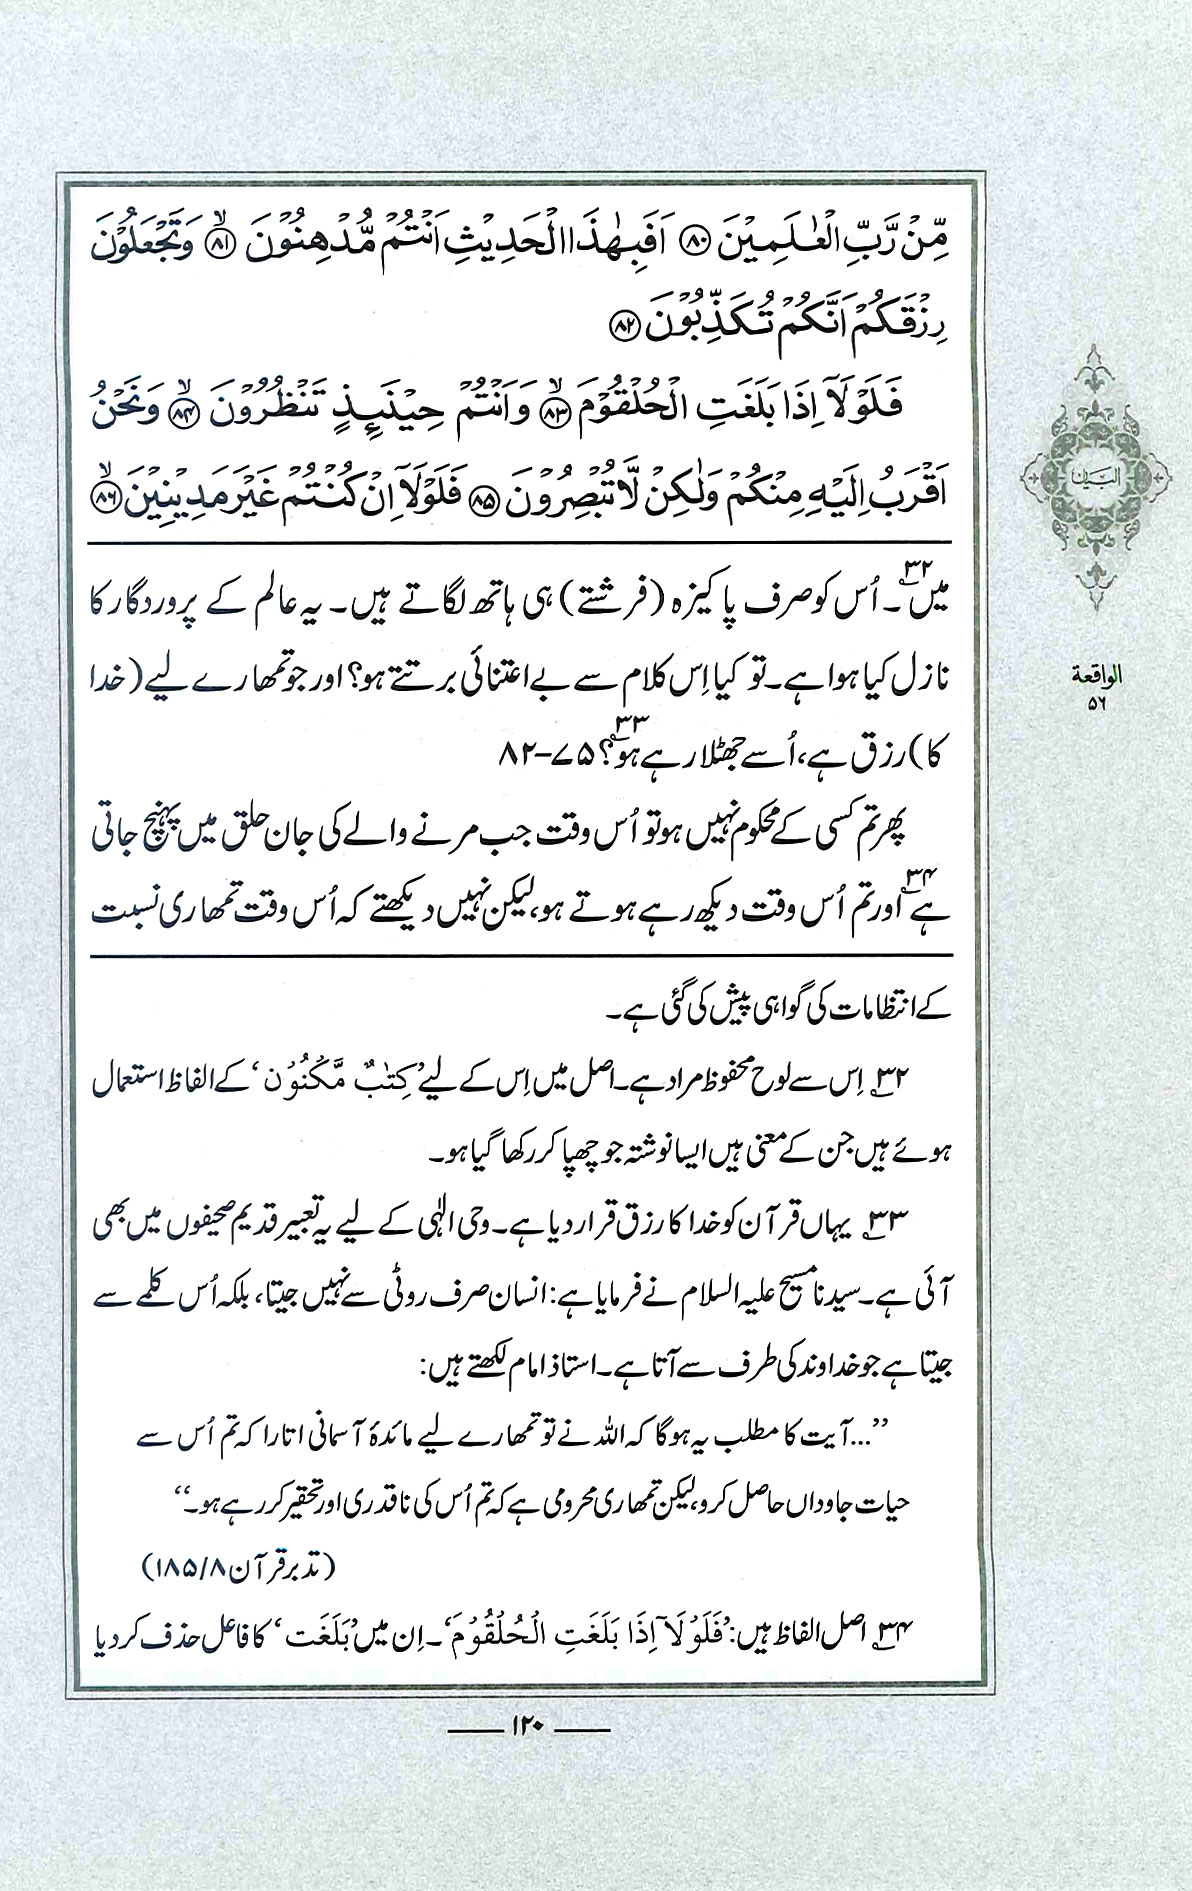 مِّنْ رَّبِّ الْعٰلَمِيْنَ ﴿۸۰﴾ اَفَبِهٰذَا الْحَدِيْثِ اَنْتُمْ مُّدْهِنُوْنَ ﴿۸۱﴾ۙ وَتَجْعَلُوْنَ
رِزْقَكُمْ اَنَّكُمْ تُكَذِّبُوْنَ ﴿۸۲﴾
فَلَوْلَآ اِذَا بَلَغَتِ الْحُلْقُوْمَ ﴿۸۳﴾ۙ وَاَنْتُمْ حِيْنَئِذٍ تَنْظُرُوْنَ ﴿۸۴﴾ۙ وَنَحْنُ
اَقْرَبُ اِلَيْهِ مِنْكُمْ وَلٰكِنْ لَّا تُبْصِرُوْنَ ﴿۸۵﴾ فَلَوْلَآ اِنْ كُنْتُمْ غَيْرَ مَدِيْنِيْنَ ﴿۸۶﴾ۙ
میں۳۲۔ اُس کو صرف پاکیزہ (فرشتے) ہی ہاتھ لگاتے ہیں۔ یہ عالم کے پروردگار کا
نازل کیا ہوا ہے۔ تو کیا اِس کلام سے بے اعتنائی برتتے ہو؟ اور جو تمھارے لیے (خدا
کا) رزق ہے، اُسے جھٹلا رہے ہو۳۳؟ ۷۵-۸۲
پھر تم کسی کے محکوم نہیں ہو تو اُس وقت جب مرنے والے کی جان حلق میں پہنچ جاتی
ہے۳۴ اور تم اُس وقت دیکھ رہے ہوتے ہو، لیکن نہیں دیکھتے کہ اُس وقت تمھاری نسبت
کے انتظامات کی گواہی پیش کی گئی ہے۔
۳۲؎ اِس سے لوح محفوظ مراد ہے۔ اصل میں اِس کے لیے ’كِتٰبٌ مَّكْنُوْن‘ کے الفاظ استعمال
ہوئے ہیں جن کے معنی ہیں ایسا نوشتہ جو چھپا کر رکھا گیا ہو۔
۳۳؎ یہاں قرآن کو خدا کا رزق قرار دیا ہے۔ وحی الٰہی کے لیے یہ تعبیر قدیم صحیفوں میں بھی
آئی ہے۔ سیدنا مسیح علیہ السلام نے فرمایا ہے: انسان صرف روٹی سے نہیں جیتا، بلکہ اُس کلمے سے
جیتا ہے جو خداوند کی طرف سے آتا ہے۔ استاذ امام لکھتے ہیں:
’’...آیت کا مطلب یہ ہو گا کہ اللہ نے تو تمھارے لیے مائدۂ آسمانی اتارا کہ تم اُس سے
حیات جاوداں حاصل کرو، لیکن تمھاری محرومی ہے کہ تم اُس کی ناقدری اور تحقیر کر رہے ہو۔‘‘
(تدبرقرآن ۸/ ۱۸۵)
۳۴؎ اصل الفاظ ہیں: ’فَلَوْلَآ اِذَا بَلَغَتِ الْحُلْقُوْمَ‘۔ اِن میں ’بَلَغَت‘ کا فاعل حذف کر دیا
البیان
الواقعة
۵۶
۱۲۰